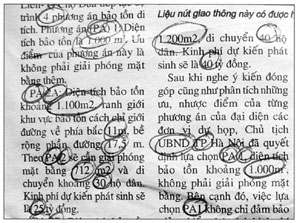 trình 4 phương án bảo tồn di
tích. Phương án (PA) 1: Diện
tích bảo tồn là 1.000 m². Ưu
điểm của phương án này là
không phải giải phóng mặt
bằng thêm.
PA 2A: Diện tích bảo tồn
khoảng 1.100m2, ranh giới
khu vực bảo tồn cách chỉ giới
đường về phía bắc 11m, bề
rộng phần đường 17,5 m.
Theo PA 2 sẽ cần giải phóng
mặt bằng 712 m2 và di
chuyển khoảng 30 hộ dân.
Kinh phí dự kiến phát sinh sẽ
là 25 tỷ đồng.
Liệu nút giao thông này có được h
1.200m2, di chuyển 40 hộ
dân. Kinh phí dự kiến phát
sinh sẽ là 40 tỷ đồng.
Sau khi nghe ý kiến đóng
góp cũng như phân tích những
ưu, nhược điểm của từng
phương án của đại diện các
đơn vị dự họp, Chủ tịch
UBND TP Hà Nội đã quyết
định lựa chọn PA 1, diện tích
bảo tồn khoảng 1.000m²,
không phải giải phóng mặt
bằng. Bên cạnh đó, việc lựa
chọn PA1 không chỉ đảm bảo